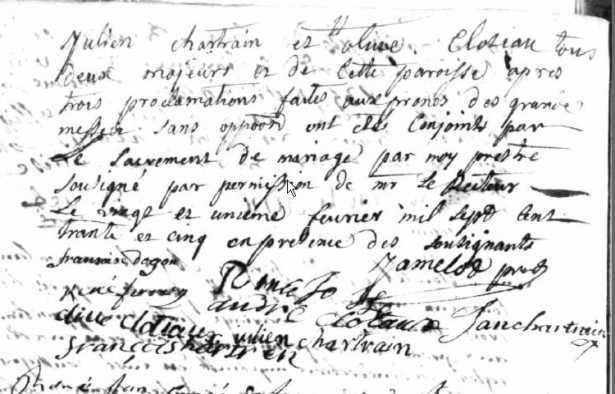 Julien chartrain et hte olive Cloteau tous
deux majeurs et de Cette paroisse apres
trois proclamations faites aux prones des grande
messes sans oppoon ont été Conjoints par
Le Sacrement de mariage par moy prestre
Sousigné par permission de mr Le Recteur
Le vingt et unieme fevrier mil Sept Cent
trante et cinq en presence des sousignants
francoise dagon
René
andre cloteaux Jan chartrain
olive clotiaux julien chartrain
françois